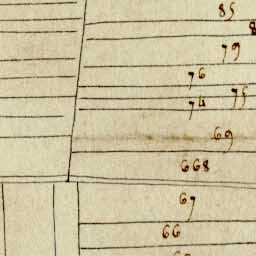 85
79
76
74 75
69
668
67
66